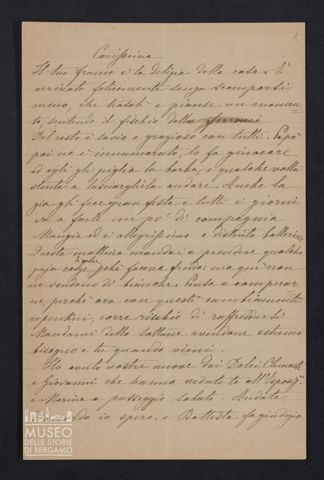 Carissima
Il tuo è la delizia della casa. È
arrivato felicemente senza scomporsi
meno, che trasalì e pianse un momen
to, sentendo il fischio della ferrovia
Del resto è savio e grazioso con tutti. Papà
poi ne è innamorato, lo fa giuocare
ed egli gli piglia la barba, e qualche volta
stenta a lasciargliela andare. Anche la
gli fece gran festa e tutti i giorni
a farli un po' di compagnia
Mangia ed è allegrissimo e distinto ballerino
Questa mattina mandai a prendere qualche
pajo calze perchè faceva freddo ma qui non
ne vendono di bianche. Pensa a comperar
ne, perchè ora con questi
repentini, corre rischio di raffreddarsi
Mandami delle sottane avendone estremo
bisogno e tu quando vieni.
Ho avuto vostre nuove dai Dolci
e Giovanni che hanno veduto te all'Esposiz
e Marina a passeggio sabato. Andate
io spero, e Battista fa giudizio
MUSEO
DELLE STORIE
DI BERGAMO